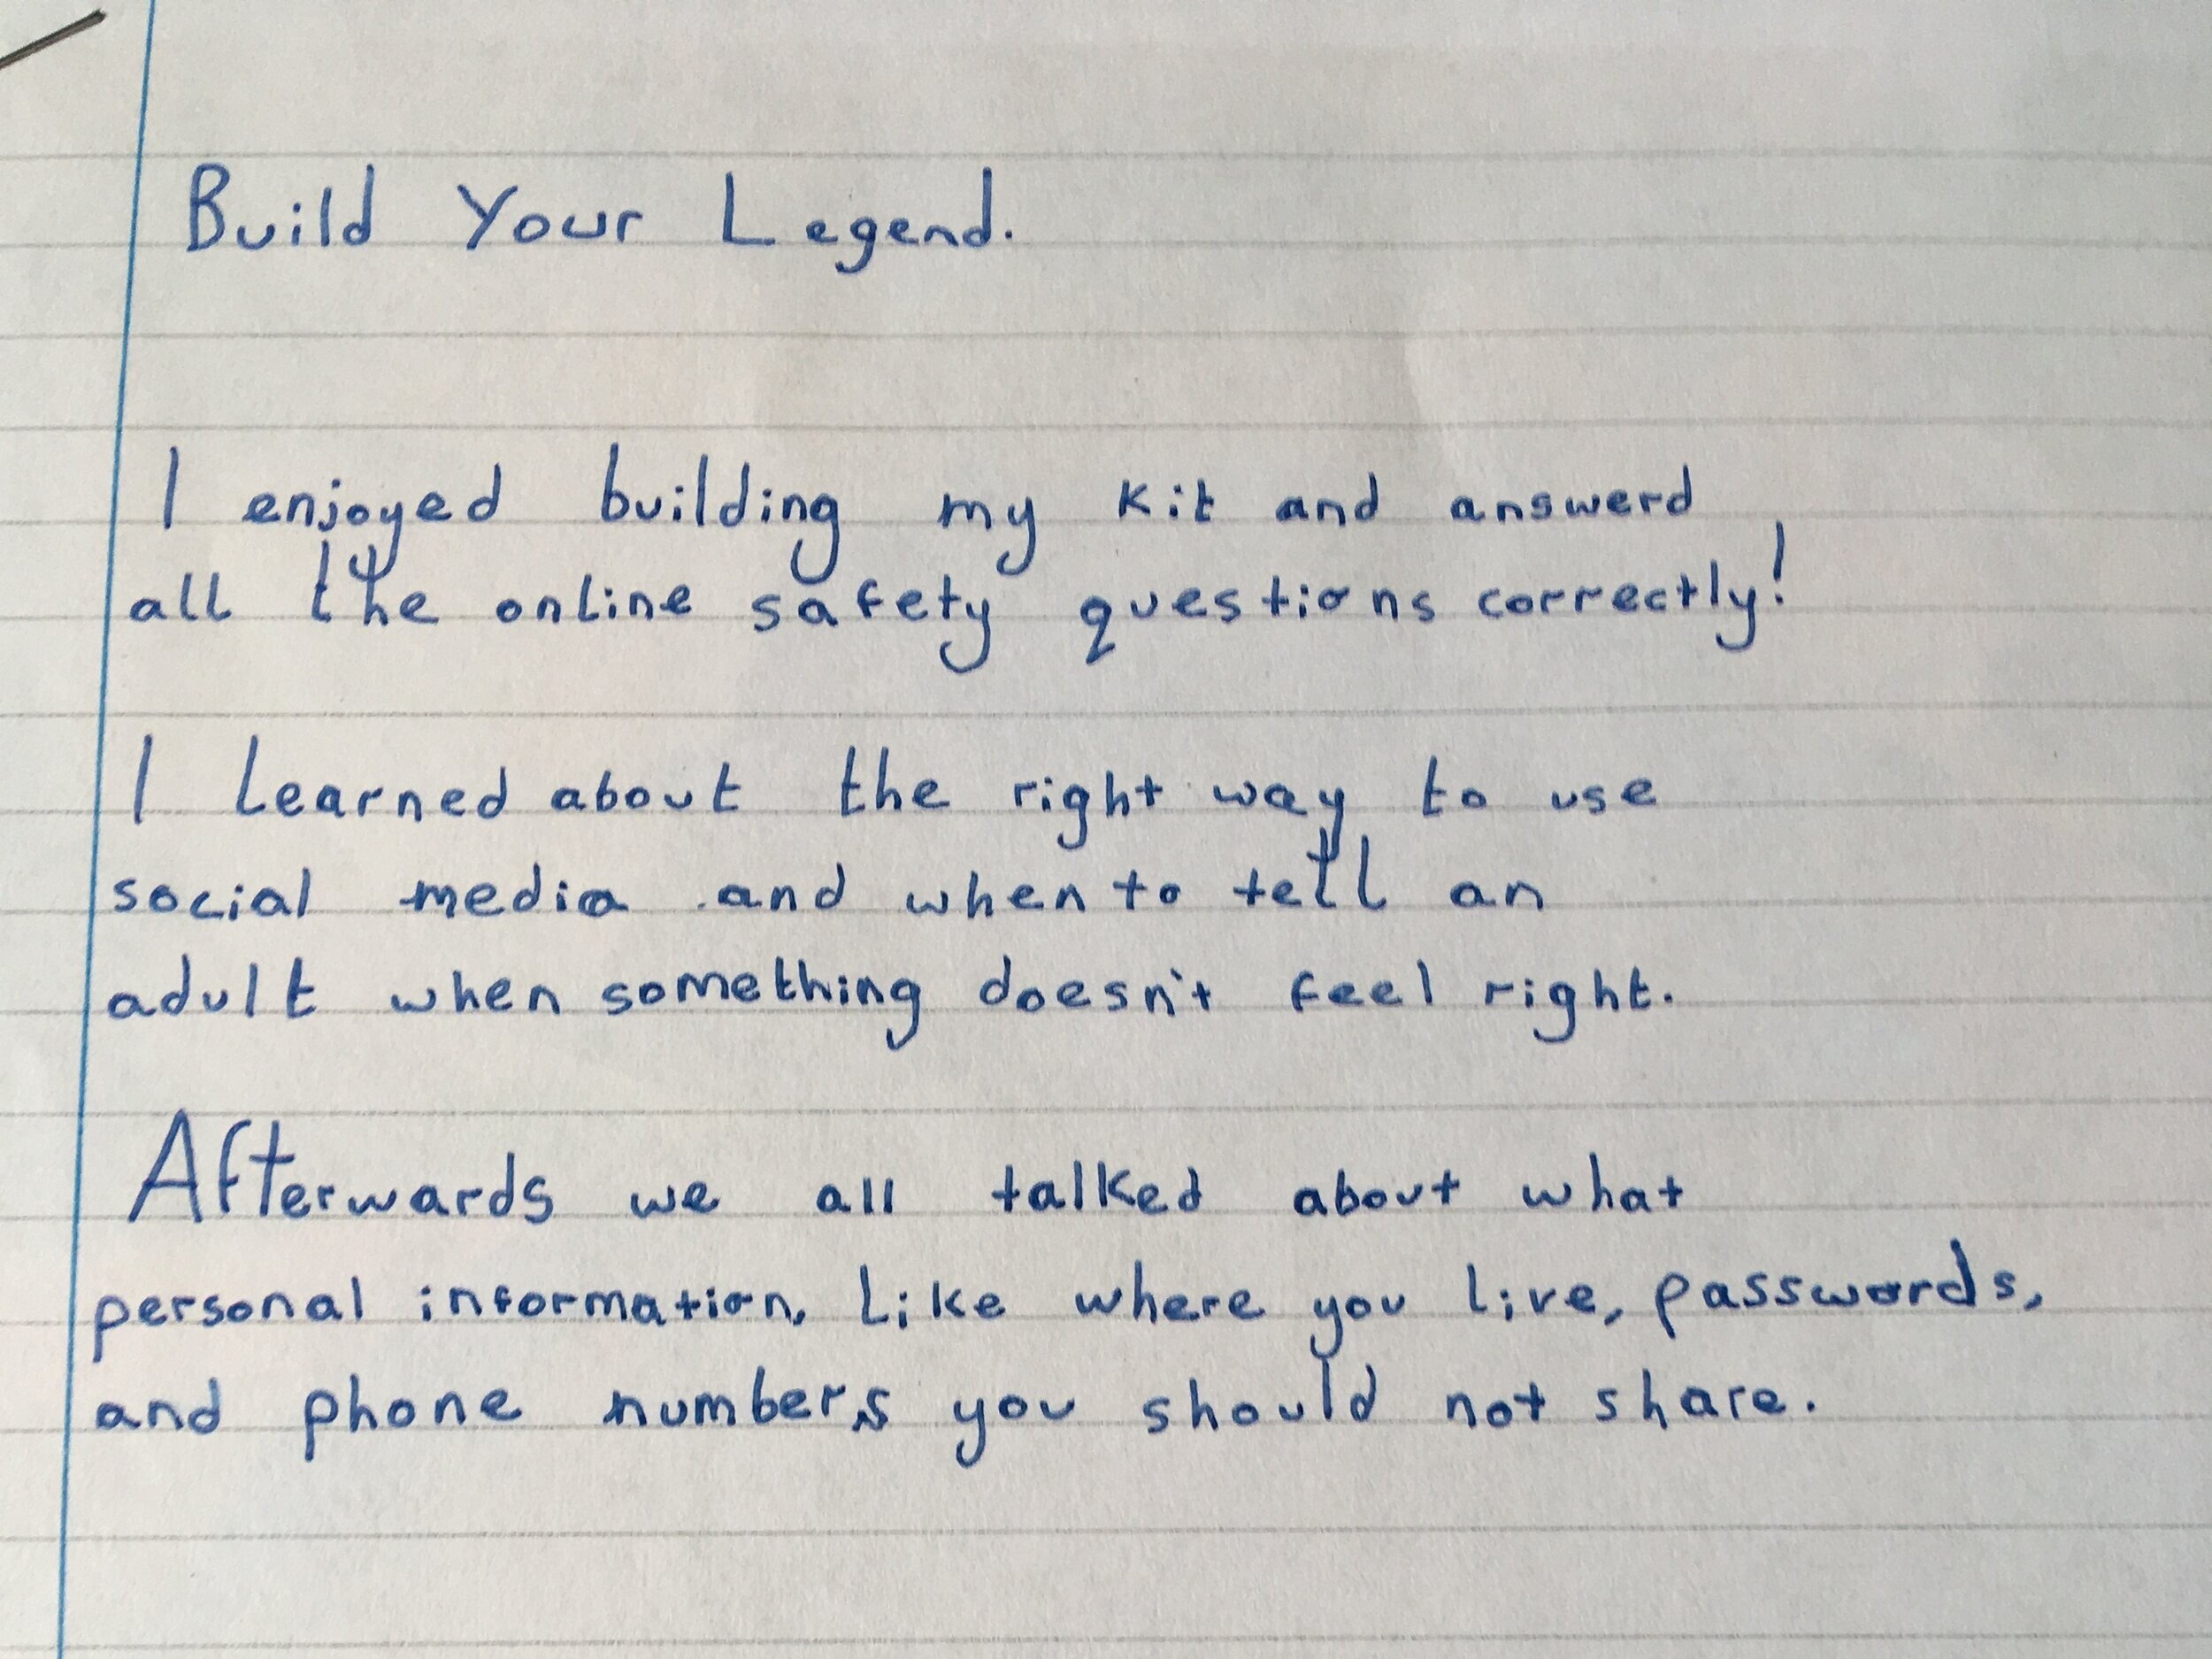 Build Your Legend.
I enjoyed building my kit and answerd
all the online safety questions correctly!
I learned about the right way to use
social media and when to tell an
adult when something doesn't feel right.
Afterwards we all talked about what
personal information, like where you live, passwords,
and phone numbers you should not share.